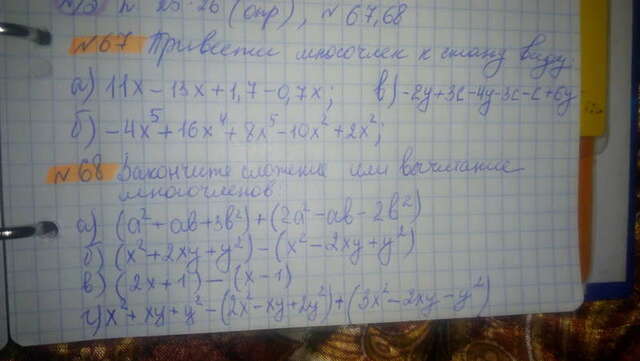 § п. 25-26 (опр), № 67,68
№67 Привести многочлен к станд виду:
а) 11x - 13x + 1,7 - 0,7x; в) -2y+3c-4y-3c-c+6y
б) -4x⁵ + 16x⁴ + 8x⁵ - 10x² + 2x²;
№68 Закончите сложение или вычитание
многочленов
а) (a² + ab + 3b²) + (2a² - ab - 2b²)
б) (x² + 2xy + y²) - (x² - 2xy + y²)
в) (2x + 1) - (x - 1)
г) x² + xy + y² - (2x² - xy + 2y²) + (3x² - 2xy - y²)